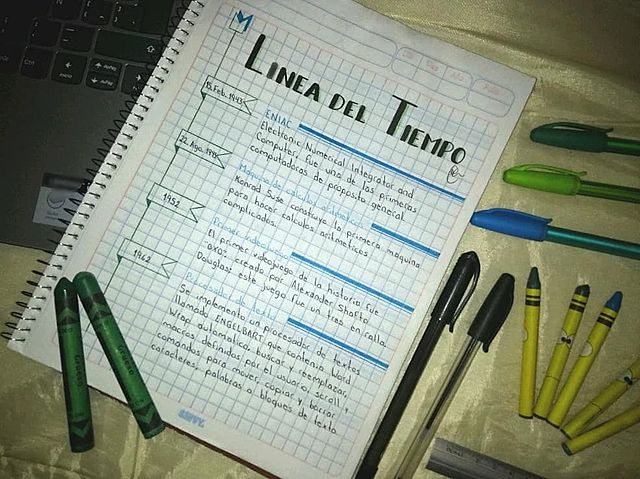 LINEA DEL TIEMPO
15.Feb.1943
ENIAC
Electronic Numerical Integrator and
Computer, fue una de las primeras
computadoras de proposito general.
22. Ago. 1945
Maquina de calculos aritmeticos
Konrad Suse construye la primera maquina
para hacer calculos aritmeticos
complicados.
1952
Primer videojuego
El primer videojuego de la historia fue
"OXO", creado por Alexander Shafto
Douglas: este juego fue un tres en ralla.
1962
Procesador de texto
Se implemento un procesador de textos
llamado ENGELBART que contenia Word
Wrap automatico, buscar y reemplazar,
macros definidas por el usuario, scroll y
comandos para mover, copiar y borrar
caracteres, palabras o bloques de texto
Ctrl